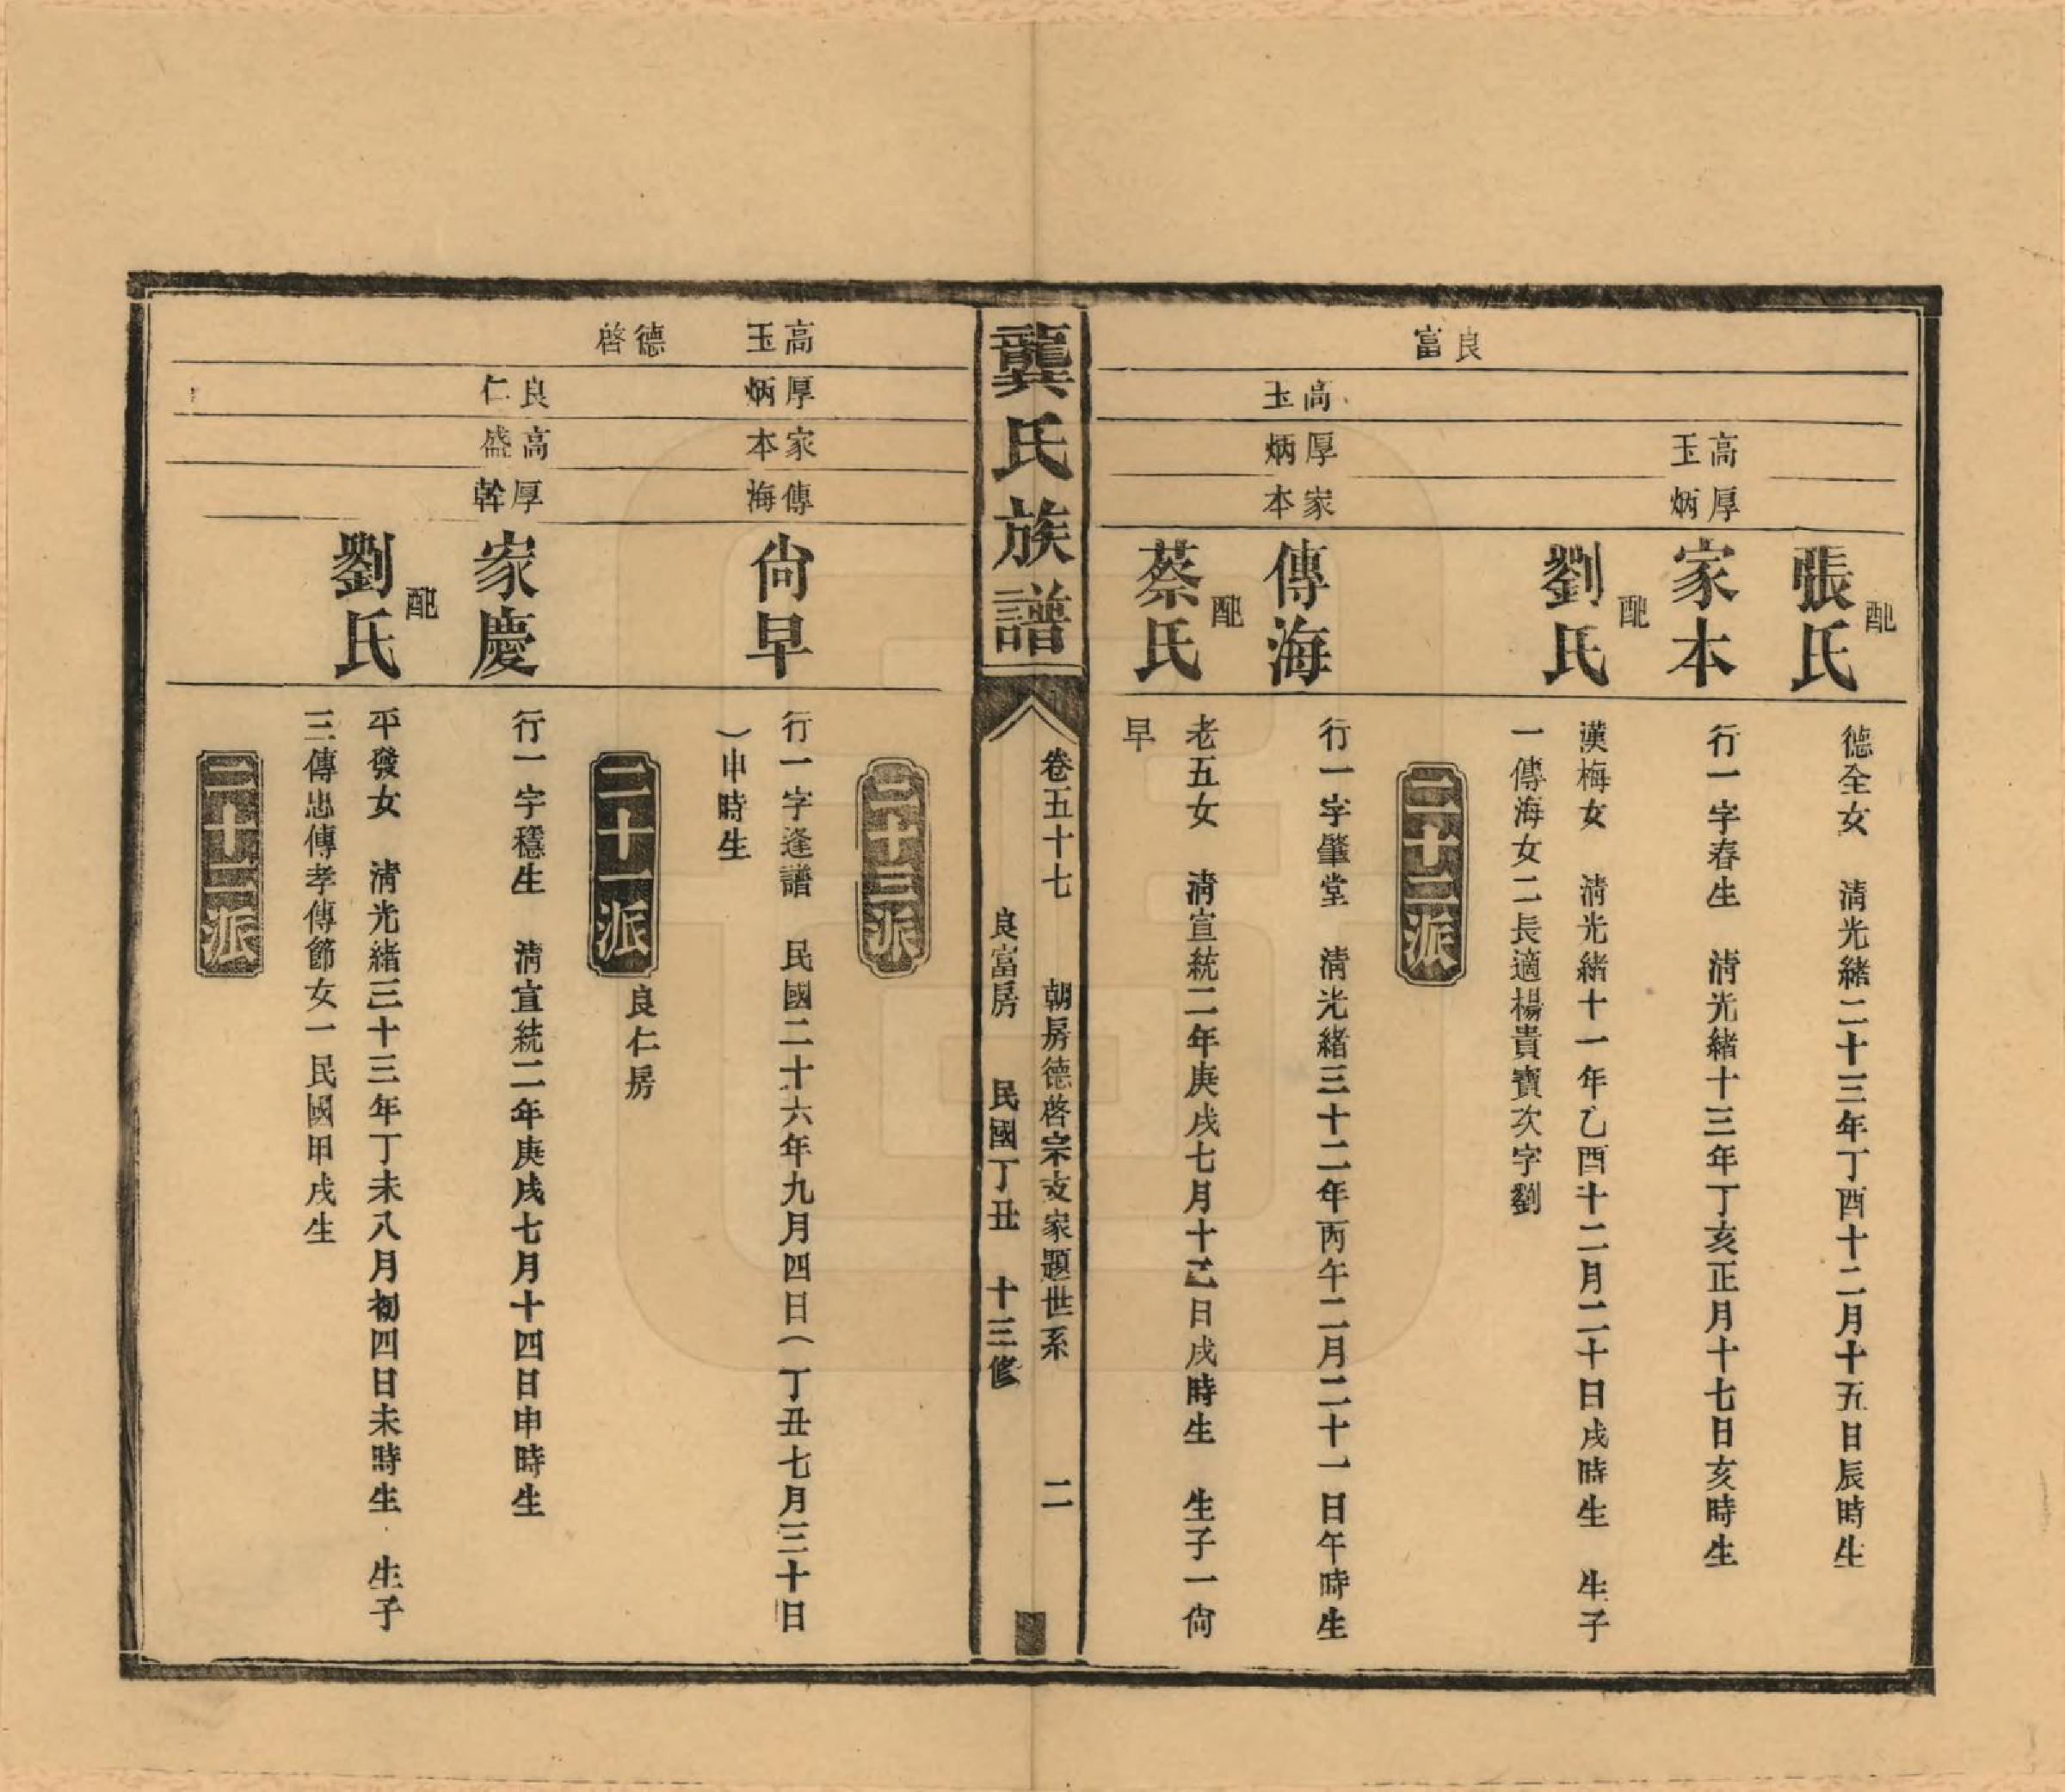 良富
高玉
厚炳
配
張氏
德全女　清光緒二十三年丁酉十二月十五日辰時生
家本
行一字春生　清光緒十三年丁亥正月十七日亥時生
配
劉氏
漢梅女　清光緒十一年乙酉十二月二十日戌時生　生子
一傳海女二長適楊貴寶次字劉
二十二派
高玉
厚炳
家本
傳海
行一字肇堂　清光緒三十二年丙午二月二十一日午時生
配
蔡氏
老五女　清宣統二年庚戌七月十乙日戌時生　生子一尙
早
龔氏族譜
卷五十七　朝房德啓宗支家題世系　二
良富房　民國丁丑　十三修
二十三派
高玉
厚炳
家本
傳海
尙早
行一字逢譜　民國二十六年九月四日（丁丑七月三十日
）申時生
德啓
二十一派
良仁房
良仁
高盛
厚幹
家慶
行一字穩生　清宣統二年庚戌七月十四日申時生
配
劉氏
平發女　清光緒三十三年丁未八月初四日未時生　生子
三傳忠傳孝傳節女一民國甲戌生
二十二派